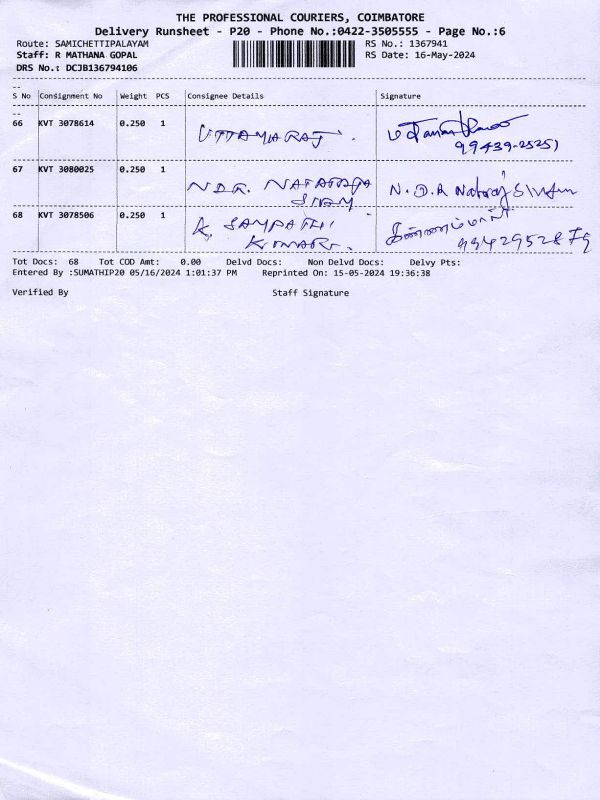 THE PROFESSIONAL COURIERS, COIMBATORE
Delivery Runsheet - P20 - Phone No.:0422-3505555 - Page No.:6
Route: SAMICHETTIPALAYAM
RS No.: 1367941
Staff: R MATHANA GOPAL
RS Date: 16-May-2024
DRS No.: DCJB136794106
S No Consignment No Weight PCS Consignee Details Signature
66 KVT 3078614 0.250 1 UTTAMARAJ
99439-25251
67 KVT 3080025 0.250 1 NDR. NATARAJA N.D.R Nataraj
68 KVT 3078506 0.250 1 K. SAMPATH
KUMAR. 9942952879
Tot Docs: 68 Tot COD Amt: 0.00 Delvd Docs: Non Delvd Docs: Delvy Pts:
Entered By :SUMATHIP20 05/16/2024 1:01:37 PM Reprinted On: 15-05-2024 19:36:38
Verified By Staff Signature